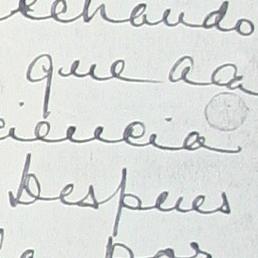 echando
que aca
iencia
Despues